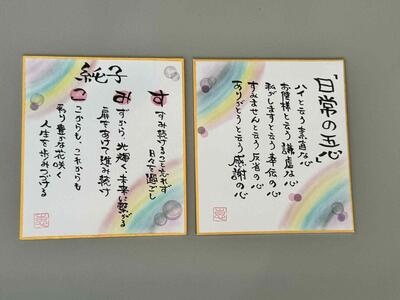 純子
す すみ続けること忘れず
日々を過ごし
み ずから、光輝く未来に繋がる
扉をあけて進み続け
こ これからも、これからも
彩り豊かな花咲く
人生を歩みつづける
「日常の五心」
ハイと云う素直な心
お陰様と云う謙虚な心
私がしますと云う奉仕の心
すみませんと云う反省の心
ありがとうと云う感謝の心